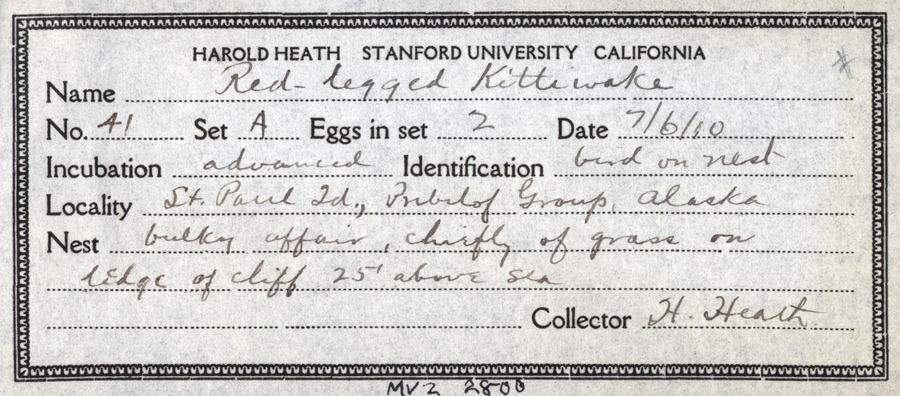 HAROLD HEATH STANFORD UNIVERSITY CALIFORNIA
Name Red-legged Kittiwake
No. 41 Set A Eggs in set 2 Date 7/6/10
Incubation advanced Identification bird on nest
Locality St. Paul Id., Pribilof Group, Alaska
Nest bulky affair, chiefly of grass on
ledge of cliff 25' above sea
Collector H. Heath
MVZ 2800